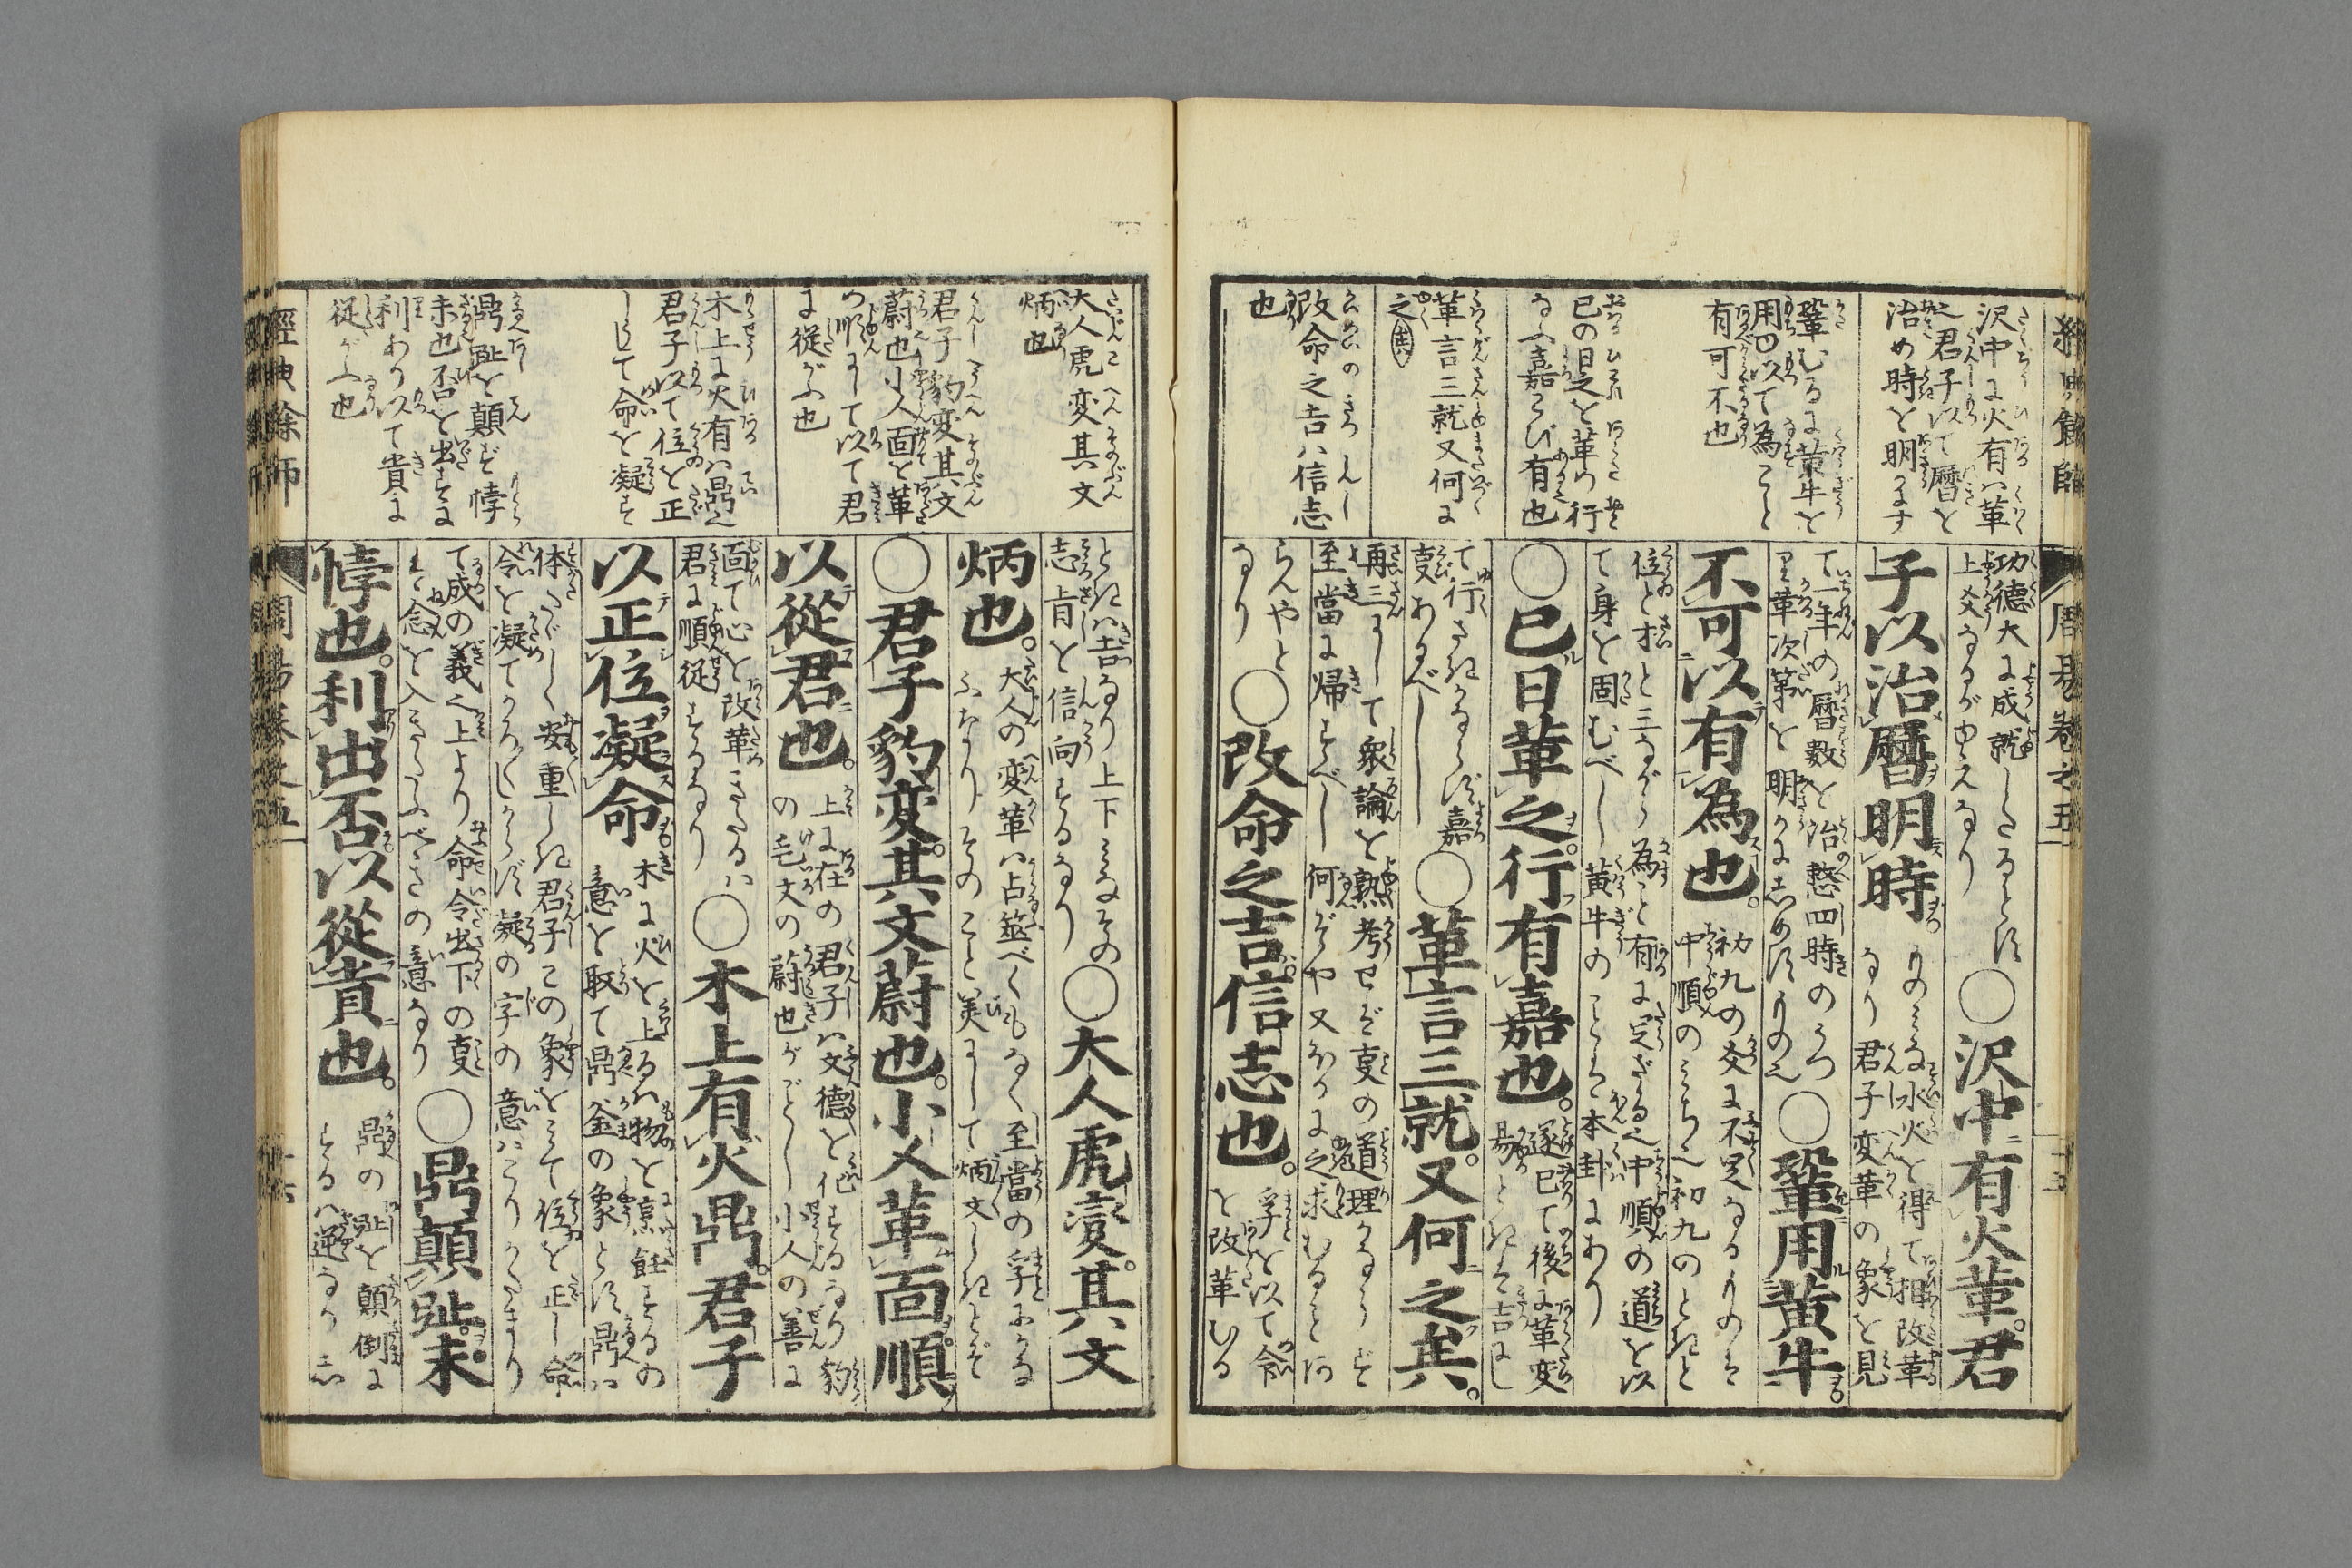 沢中に火有ハ革
之君子以て暦を
治め時を明かにす
鞏むるに黄牛を
用ゆ以て為こと
有可不也
已の日之を革め行
なふ嘉こび有也
革言三就又何に
之
改命之吉ハ信志
也
功徳大に成就したるとき
上爻なるがゆえなり
○沢中有火革。君
子以治暦明時。
なり君子変革の象を見
て一年の暦数を治整四時のうつ
り革次第を明かにしめすもの也
○鞏用黄牛
不可以有為也。
初九の爻は不足なるものゆへ
中順のみち也初九のときと
位と才と三ながら為こと有に足ざる也中順の道を以
て身を固むべし黄牛のことは本卦にあり
○已日革之。行有嘉也。
遂已て後に革変
易ときは吉にし
て行さきかならず嘉
事あるべし
○革言三就。又何之矣。
再三にして衆論を熟考せば事の道理かならず
至當に帰すべし何ぞや又ほかに之求むることあ
らんやと
なり
○改命之吉。信志也。
孚を以て命
を改革むる
大人虎変其文
炳也
君子豹変其文
蔚也小人面を革
め順にして以て君
に従がふ也
木上に火有ハ鼎也
君子以て位を正
しふして命を凝す
鼎趾を顛す悖
未也否を出すに
利あり以て貴に
従がふ也
ときハ吉なり上下みなその
志肯を信向するなり
○大人虎変。其文
炳也。
大人の変革ハ占筮べくもなく至當の孚あかる
ふなりそのこと美にして炳文しきとぞ
○君子豹変。其文蔚也。小人革面。順
以從君也。
上に在の君子ハ文徳を化するなり豹
の毛文の蔚也がごとし小人の善に
面て心を改革きたるハ
君に順従するなり
○木上有火鼎。君子
以正位凝命
木に火を上るハ物を烹飪するの
意を取て鼎釜の象とす鼎ハ
体たゞしく安重しき君子この象をみて位を正し命
令を凝てかろ〴〵しからず凝の字の意ハこりかたまり
て成の義也上より命令出下の事
は念を入きらふべきの意なり
○鼎顛趾。未
悖也。利出否。以從貴也。
鼎の趾を顛倒に
するハ逆なり
經典餘師
周易巻之五